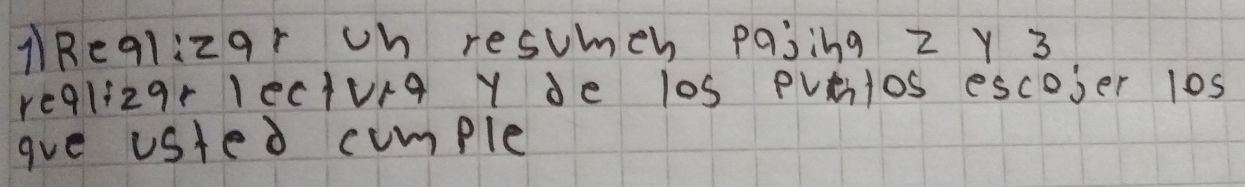 1) Realizar un resumen pajina 2 y 3
realizar lectura y de los puntos escojer los
que usted cumple